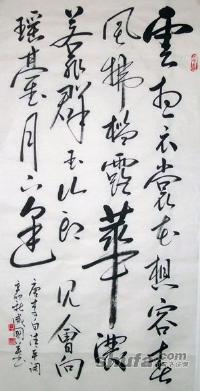 雲想衣裳花想容春
風拂檻露華濃
若非群玉山頭見會向
瑤臺月下逢
唐李白句清平調
辛卯秋